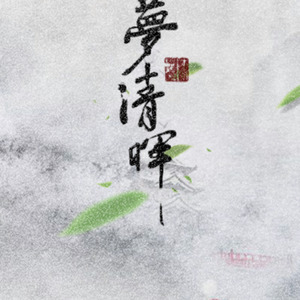 夢清暉